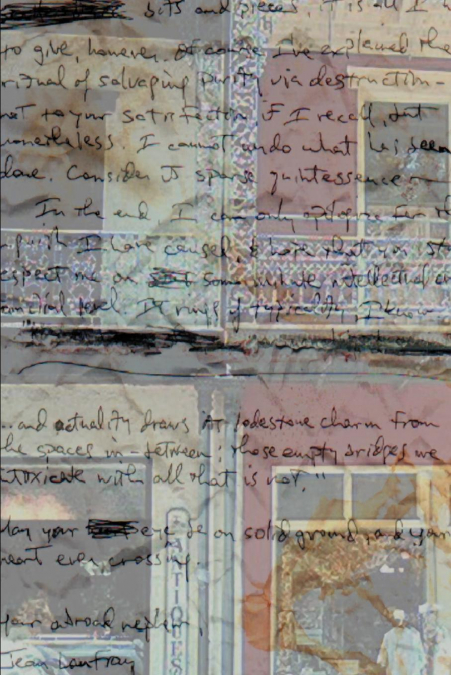 bits and pieces. It is all I
to give, however. Of course I've explained the
ritual of salvaging purity via destruction -
not to your satisfaction, if I recall, but
nonetheless. I cannot undo what has been
done. Consider its sparse quintessence —
In the end I can only apologize for
I have caused, & hope that you
respect me on some minute intellectual
level. It rings of typicality, I know
...and actuality draws its lodestone charm from
the spaces in-between; those empty bridges we
intoxicate with all that is not."
May your eye be on solid ground, and your
heart ever crossing.
your abroad nephew,
Jean
ANTIQUES